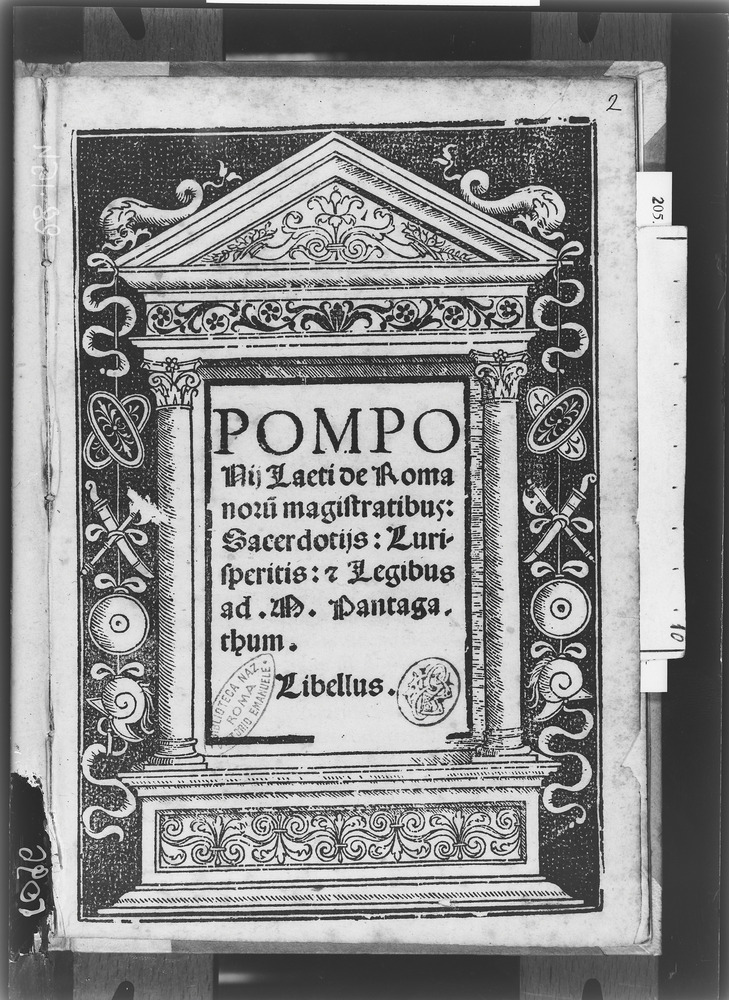 2
205.
POMPO
Nij Laeti de Roma
norū magiſtratibus:
Sacerdotijs: Iuri-
ſperitis: ⁊ Legibus
ad .M. Pantaga.
thum.
Libellus.
BIBLIOTECA NAZ.
ROMA
VITTORIO EMANUELE
10